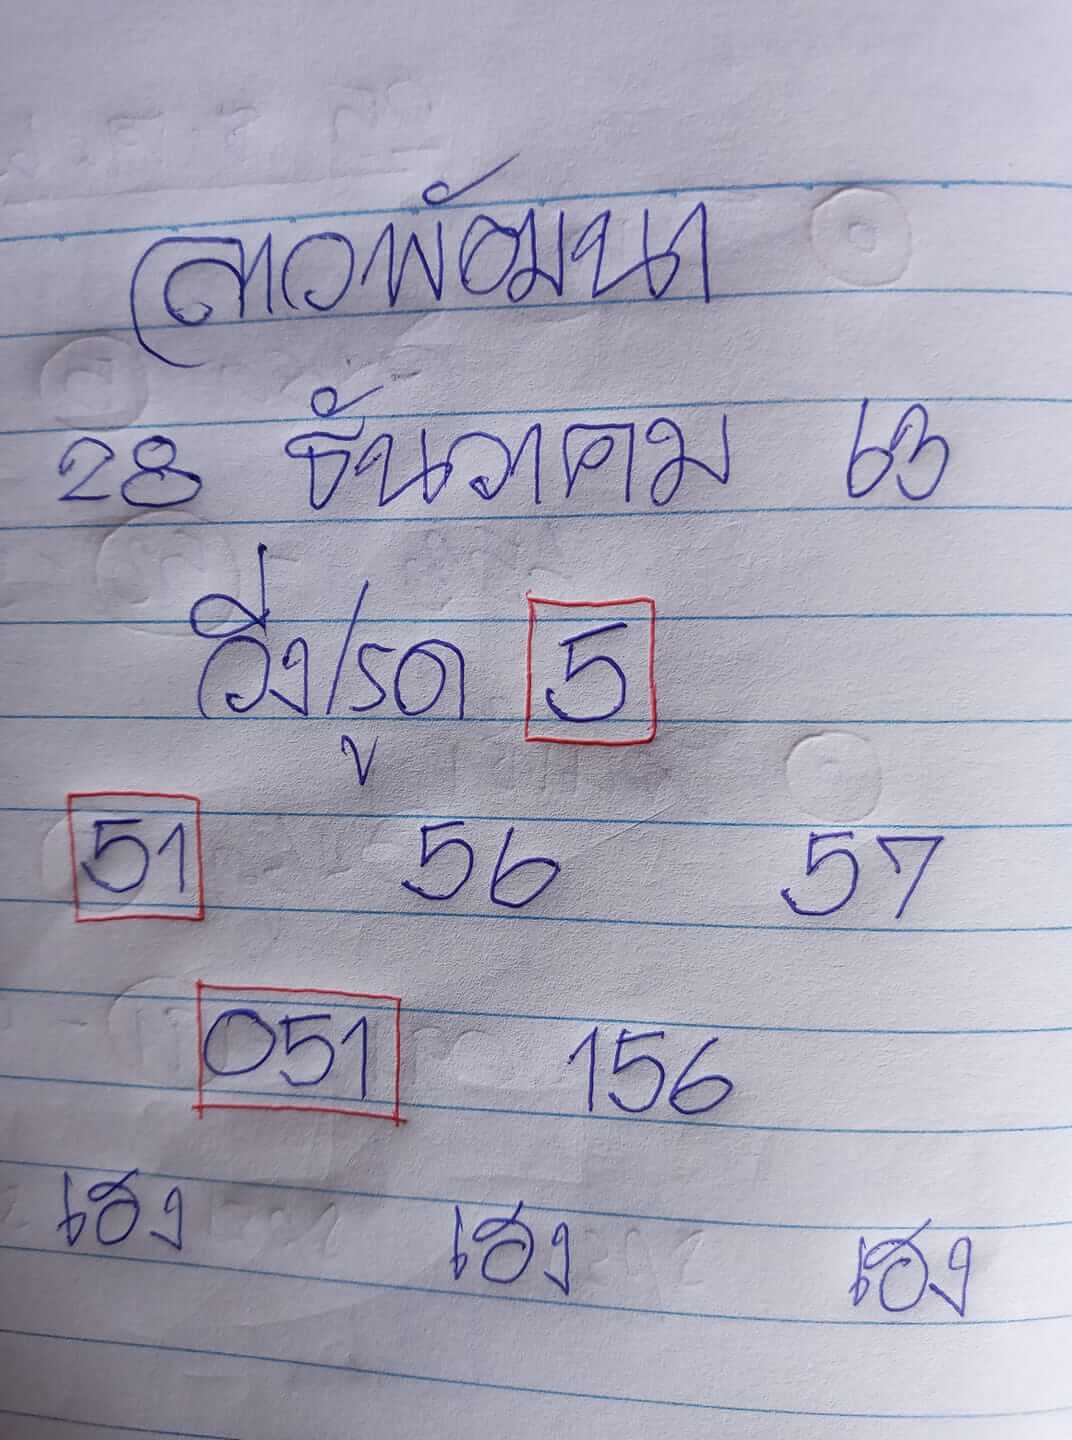 ลาวพัฒนา
28 ธันวาคม 63
วิ่ง/รูด 5
51 56 57
051 156
เฮง เฮง เฮง